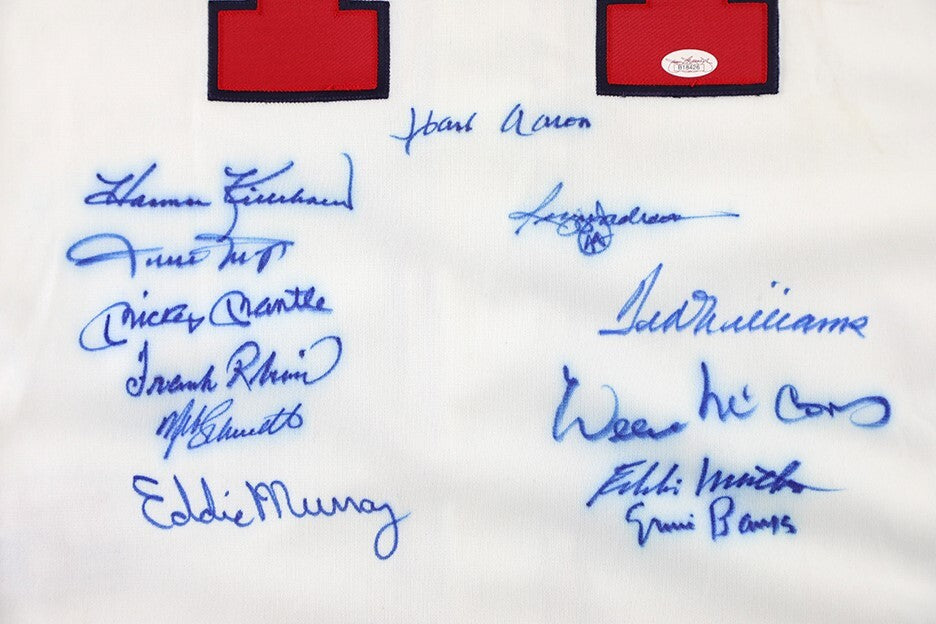 B18426
Hank Aaron
Harmon Killebrew
Willie Mays
Mickey Mantle
Frank Robinson
Mike Schmidt
Eddie Murray
Reggie Jackson
Ted Williams
Willie McCovey
Eddie Mathews
Ernie Banks